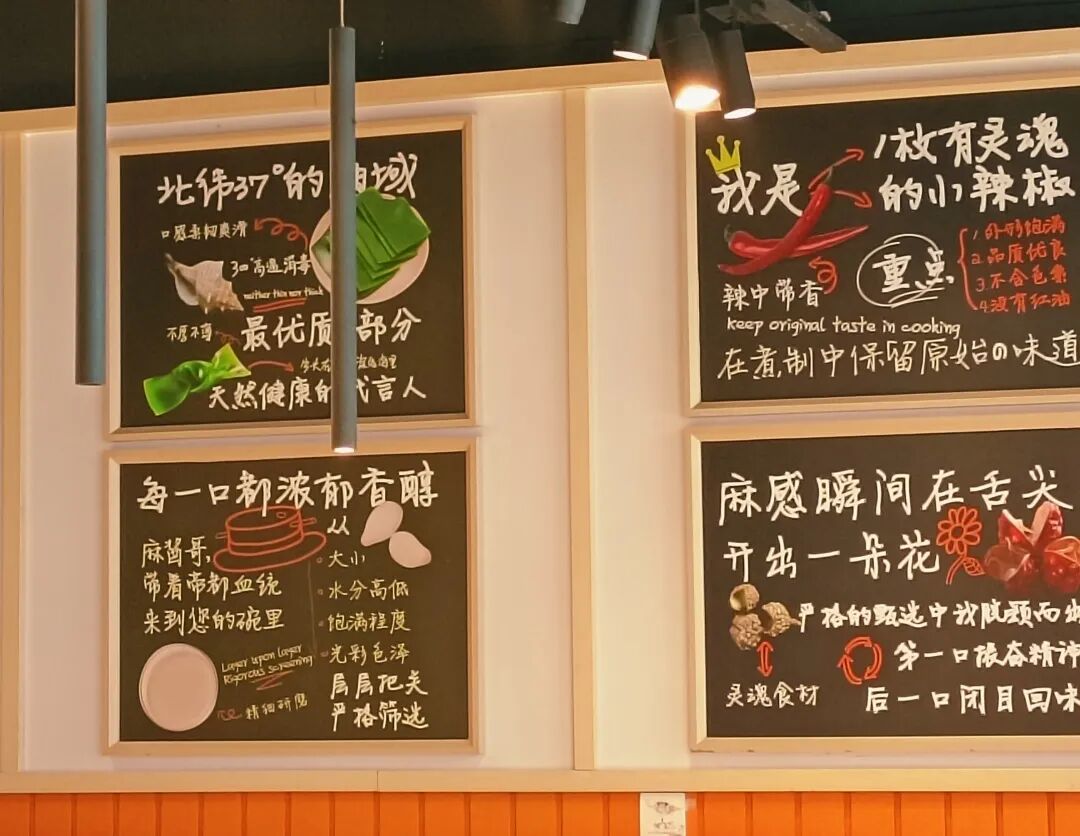 北纬37°的 域
口感柔韧爽滑
300°高温消毒
neither thin nor thick
不厚不薄
最优质 部分
天然健康的代言人
我是
1枚有灵魂
的小辣椒
重点
1.外形饱满
2.品质优良
3.不含色素
4.没有红油
辣中带香
keep original taste in cooking
在煮制中保留原始の味道
每一口都浓郁香醇
麻酱哥,
带着帝都血统
来到您的碗里
从
大小
水分高低
饱满程度
光彩色泽
层层把关
严格筛选
Layer upon layer
Rigorous screening
精细研磨
麻感瞬间在舌尖
开出一朵花
严格的甄选中我脱颖而出
灵魂食材
第一口振奋精神
后一口闭目回味